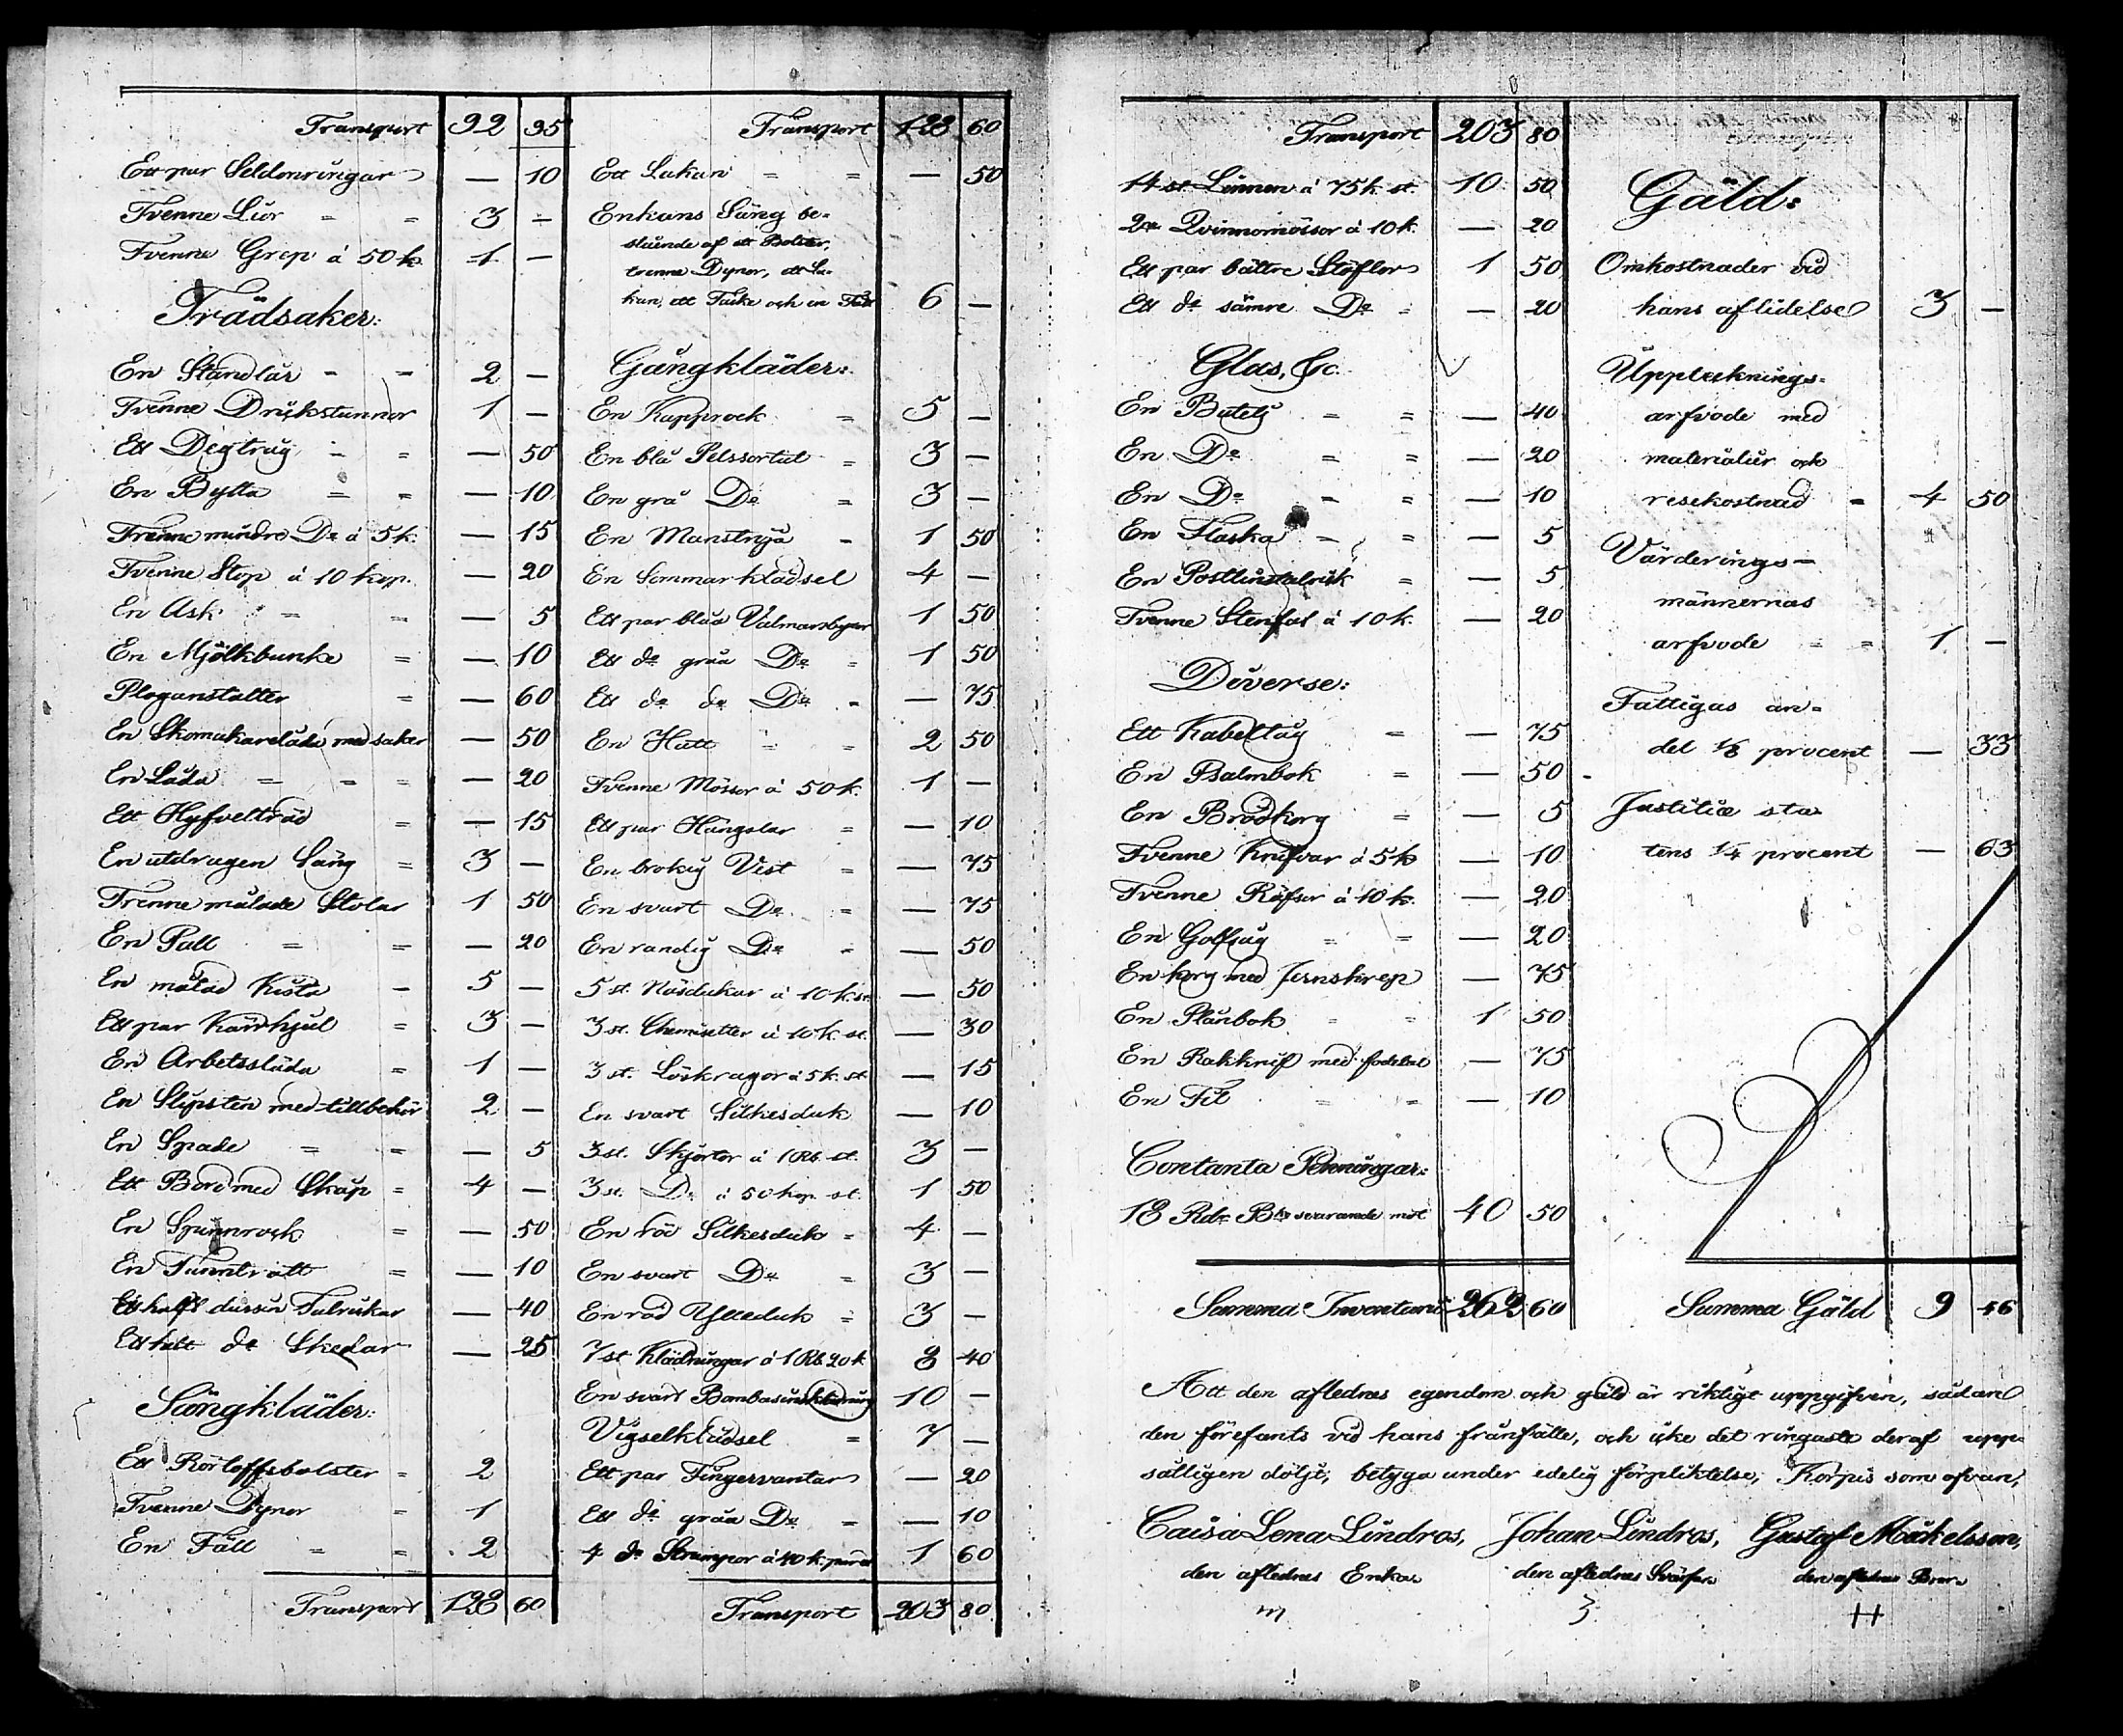 Transport 92 95
Ett par Seldonringar — 10
Tvenne Lior = = 3 —
Tvenne Grep á 50 k. 1 —
Trädsaker:
En Ståndlår - - 2 —
Tvenne Drickstunnor 1 —
Ett Degtråg = = — 50
En Bytta = = — 10
Trenne mindre Do á 5 k. — 15
Tvenne Stop á 10 kop. — 20
En Ask = = — 5
En Mjölkbunke = — 10
Ploganstalter = — 60
En Skomakarelåda med saker — 50
En Låda = = = — 20
Ett Hyfveltråd = — 15
En utdragen Säng = 3 —
Trenne målade Stolar 1 50
En Pall = = — 20
En målad Kista - 5 —
Ett par Kärrhjul = 3 —
En Arbetssläda = 1 —
En Slipsten med tillbehör 2 —
En Spade = = — 5
Ett Bord med Skåp = 4 —
En Spinnrock = — 50
En Tunntratt = — 10
Ett halft dussin Talrickar — 40
Ett halft do Skedar — 25
Sängkläder:
Ett Rörloffsbolster = 2
Tvenne Dynor = 1
En Fäll = = 2
Transport 128 60
Transport 128 60
Ett Lakan = = — 50
Enkans Säng be-
stående af ett Bolster,
trenne Dynor, ett La-
kan, ett Täcke och en Fäll 6 —
Gångkläder:
En Kapprock = 5 —
En blå Pelssortut = 3 —
En grå Do = 3 —
En Manströja - 1 50
En Sommarklädsel 4 —
Ett par blåa Valmarsbyxor 1 50
Ett do gråa Do = 1 50
Ett do do Do - — 75
En Hatt = = 2 50
Tvenne Mössor á 50 k. 1 —
Ett par Hängslar = — 10
En brokig Vest = — 75
En svart Do = — 75
En randig Do - — 50
5 st. Näsdukar á 10 k. st. — 50
3 st. Chemisetter á 10 k. st. — 30
3 st. Löskragor á 5 k. st. — 15
En svart Silkesduk — 10
3 st. Skjortor á 1 Rb. st. 3 —
3 st. Do á 50 kop. st. 1 50
En röd Silkesduk = 4 —
En svart Do = 3 —
En röd Ylleduk = 3 —
7 st Klädningar á 1 Rb. 20 k 8 40
En svart Bombasinsklädning 10 —
Vigselklädsel = 7 —
Ett par Fingervantar — 20
Ett do gråa Do = — 10
4 do Strumpor á 40 k. paret 1 60
Transport 203 80
Transport 203 80
14 st Linnen á 75 k. st. 10 50
2ne Qvinnomössor á 10 k. — 20
Ett par bättre Stöflor 1 50
Ett do sämre Do = — 20
Glas, &c.
En Butelj = = — 40
En Do = = — 20
En Do = = — 10
En Flaska = = — 5
En Postlinstalrick = — 5
Tvenne Stenfat á 10 k. — 20
Diverse:
Ett Kabeltåg = — 75
En Psalmbok = — 50
En Brödkorg = — 5
Tvenne Knifvar á 5 k — 10
Tvenne Räfsor á 10 k. — 20
En Golfsåg = = — 20
En korg med Jernskrap — 75
En Plånbok = = 1 50
En Rakknif med foderal — 75
En Fil = = — 10
Contanta Penningar:
18 Rdr Bco svarande mot 40 50
Summa Inventarii 262 60
Gäld:
Omkostnader vid
hans aflidelse 3 —
Upptecknings-
arfvode med
materialier och
resekostnad = 4 50
Värderings-
männernas
arfvode = = 1 —
Fattigas an-
del 1/8 procent — 33
Justitiæ sta-
tens 1/4 procent — 63
Summa Gäld 9 46
Att den aflednes egendom och gäld är riktigt uppgifven, sådan
den förefants vid hans frånfälle, och icke det ringaste deraf upp-
såtligen döljt, betyga under edelig förpliktelse; Korpis som ofvan,
Caisa Lena Lindros, Johan Lindros, Gustaf Mickelsson,
den aflednes Enka. den aflednes Svärfar. den aflednes Bror.